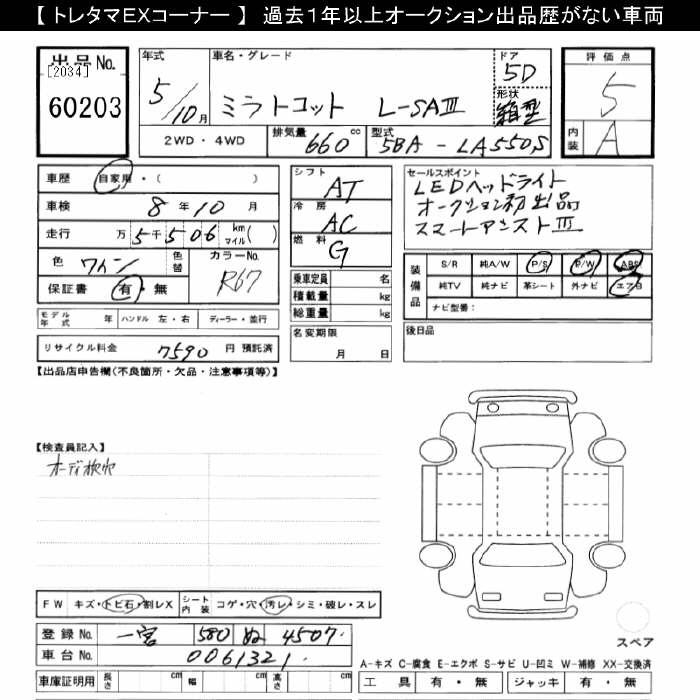 【 トレタマEXコーナー 】 過去1年以上オークション出品歴がない車両
出品 No.
[2034]
60203
年式
5/10月
車名・グレード
ミラトコット L-SAⅢ
ドア
5D
形状
箱型
評価点
5
内装
A
2WD・4WD
排気量
660 cc
型式
5BA - LA550S
車歴
自家用・( )
車検
8年10月
走行
万5千506 km マイル( )
色
ワイン
色替
カラーNo.
R67
保証書
有・無
シフト
AT
冷房
AC
燃料
G
乗車定員 名
積載量 kg
総重量 kg
セールスポイント
LEDヘッドライト
オークション初出品
スマートアシストⅢ
装備品
S/R 純A/W P/S P/W ABS
純TV 純ナビ 革シート 外ナビ エアB
ナビ型番:
モデル年式 年 ハンドル 左・右 ディーラー・並行
名変期限
月 日
後日品
リサイクル料金 7590 円 預託済
【出品店申告欄(不良箇所・欠品・注意事項等)】
【検査員記入】
オーディオ欠穴
FW キズ・トビ石・割レX
シート内装 コゲ・穴・汚レ・シミ・破レ・スレ
登録 No. 一宮 580 ぬ 4507
車台 No. 0061321
車庫証明用 長さ cm 幅 cm 高さ cm
スペア
A-キズ C-腐食 E-エクボ S-サビ U-凹ミ W-補修 XX-交換済
工具 有・無 ジャッキ 有・無